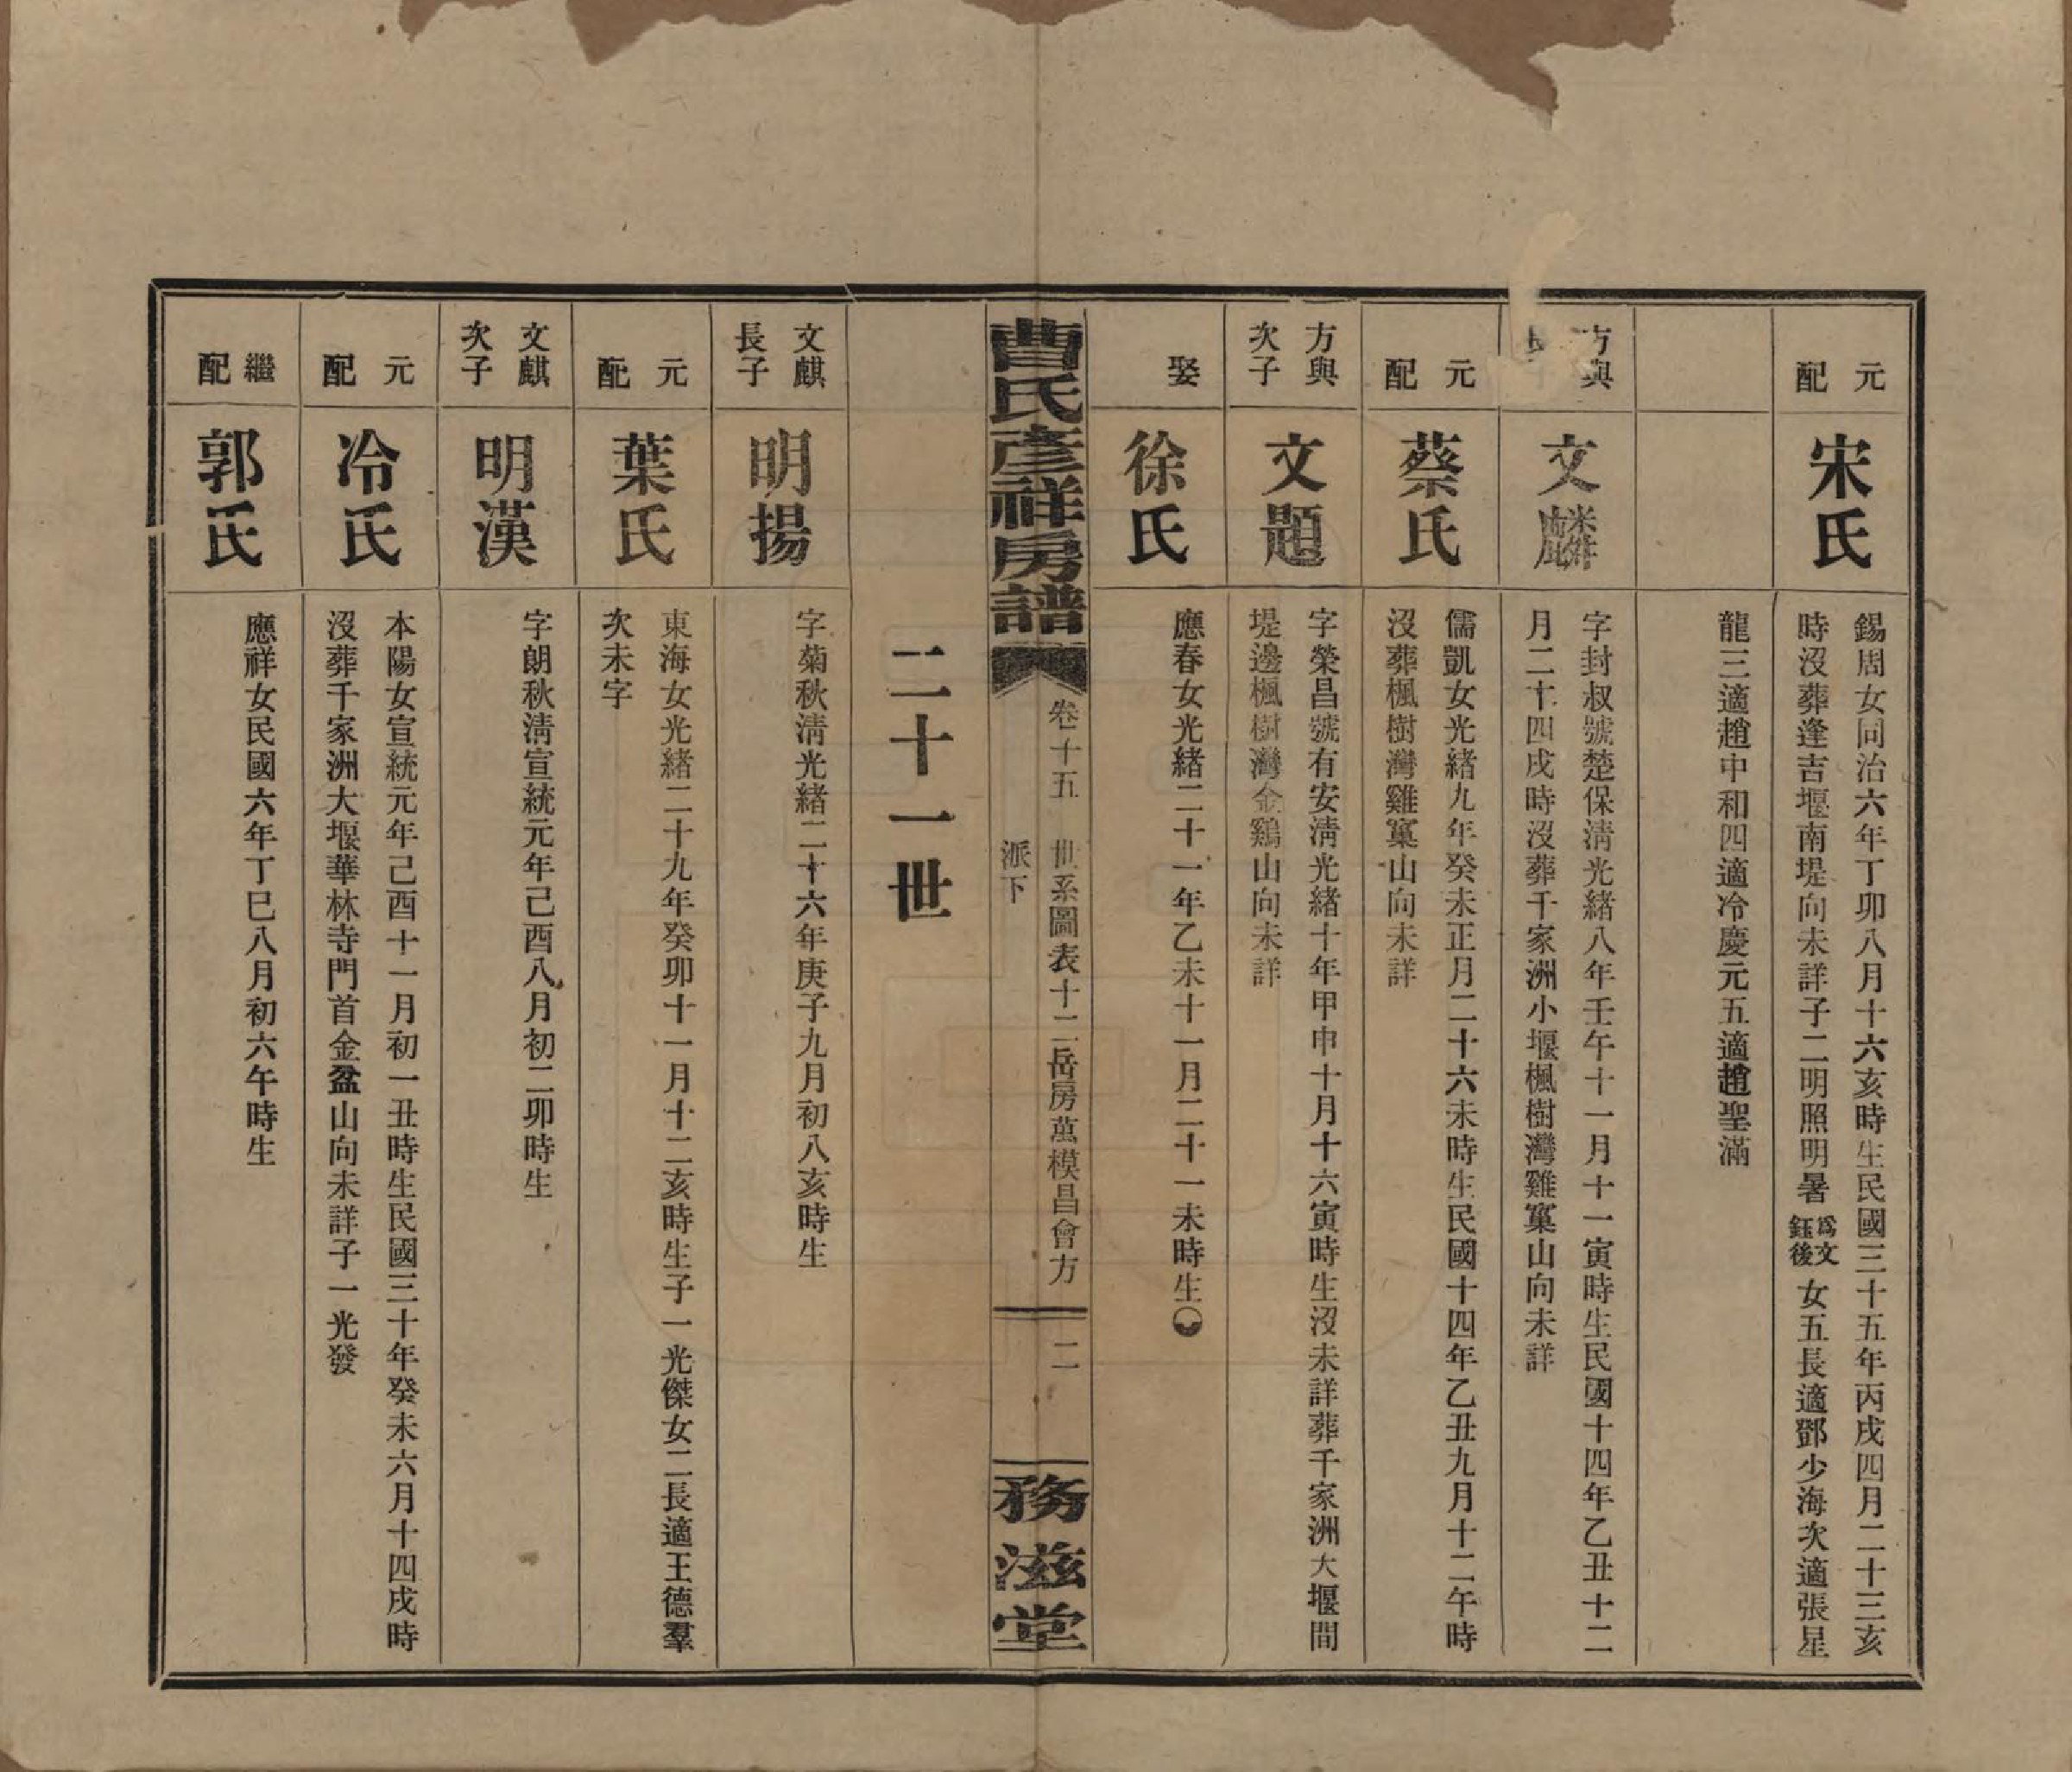 元配
宋氏
錫周女同治六年丁卯八月十六亥時生民國三十五年丙戌四月二十三亥
時沒葬逢吉堰南堤向未詳子二明照明暑爲文鈺後女五長適鄧少海次適張星
龍三適趙中和四適冷慶元五適趙聖滿
方與
文麟
字封叔號楚保清光緒八年壬午十一月十一寅時生民國十四年乙丑十二
月二十四戌時沒葬千家洲小堰楓樹灣雞窠山向未詳
元配
蔡氏
儒凱女光緒九年癸未正月二十六未時生民國十四年乙丑九月十二午時
沒葬楓樹灣雞窠山向未詳
方與
次子
文題
字榮昌號有安清光緒十年甲申十月十六寅時生沒未詳葬千家洲大堰間
堤邊楓樹灣金鷄山向未詳
娶
徐氏
應春女光緒二十一年乙未十一月二十一未時生
曹氏彥祥房譜
卷十五 世系圖表十二岳房萬模昌會方
派下
二
務滋堂
二十一世
文麒
長子
明揚
字菊秋清光緒二十六年庚子九月初八亥時生
元配
葉氏
東海女光緒二十九年癸卯十一月十二亥時生子一光傑女二長適王德羣
次未字
文麒
次子
明漢
字朗秋清宣統元年己酉八月初二卯時生
元配
冷氏
本陽女宣統元年己酉十一月初一丑時生民國三十年癸未六月十四戌時
沒葬千家洲大堰華林寺門首金盆山向未詳子一光發
繼配
郭氏
應祥女民國六年丁巳八月初六午時生